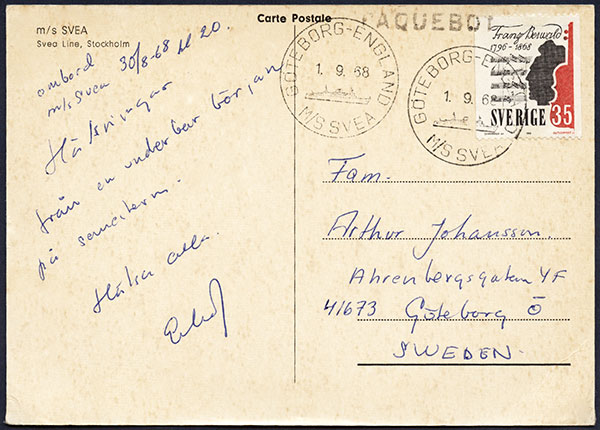 m/s SVEA
Svea Line, Stockholm
Carte Postale
PAQUEBOT
GÖTEBORG-ENGLAND
1.9.68
M/S SVEA
GÖTEBORG-ENGLAND
1.9.68
M/S SVEA
Franz Berwald
1796-1868
SVERIGE 35
ombord
m/s Svea 30/8-68 kl 20.
Hälsningar
från en underbar början
på semestern.
Hälsa alla.
Fam.
Arthur Johansson.
Ahrenbergsgatan 4F
41673 Göteborg Ö
SWEDEN.